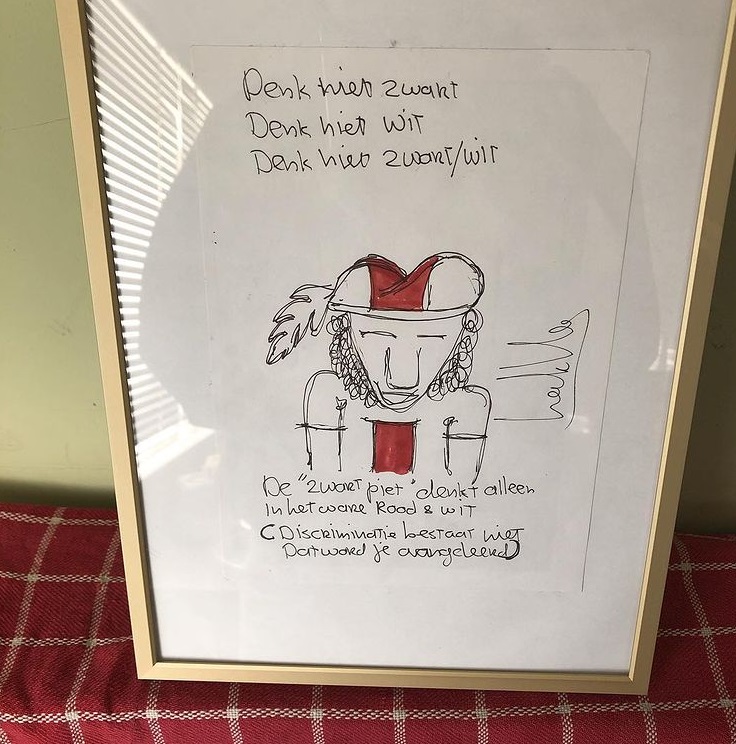 Denk niet zwart
Denk niet wit
Denk niet zwart/wit
De "zwart piet" denkt alleen
in het ware Rood & wit
(Discriminatie bestaat niet
Dat word je aangeleerd)